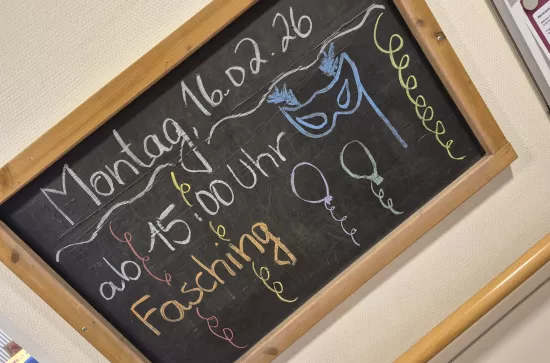 Montag, 16.02.26
ab 15:00 Uhr
Fasching